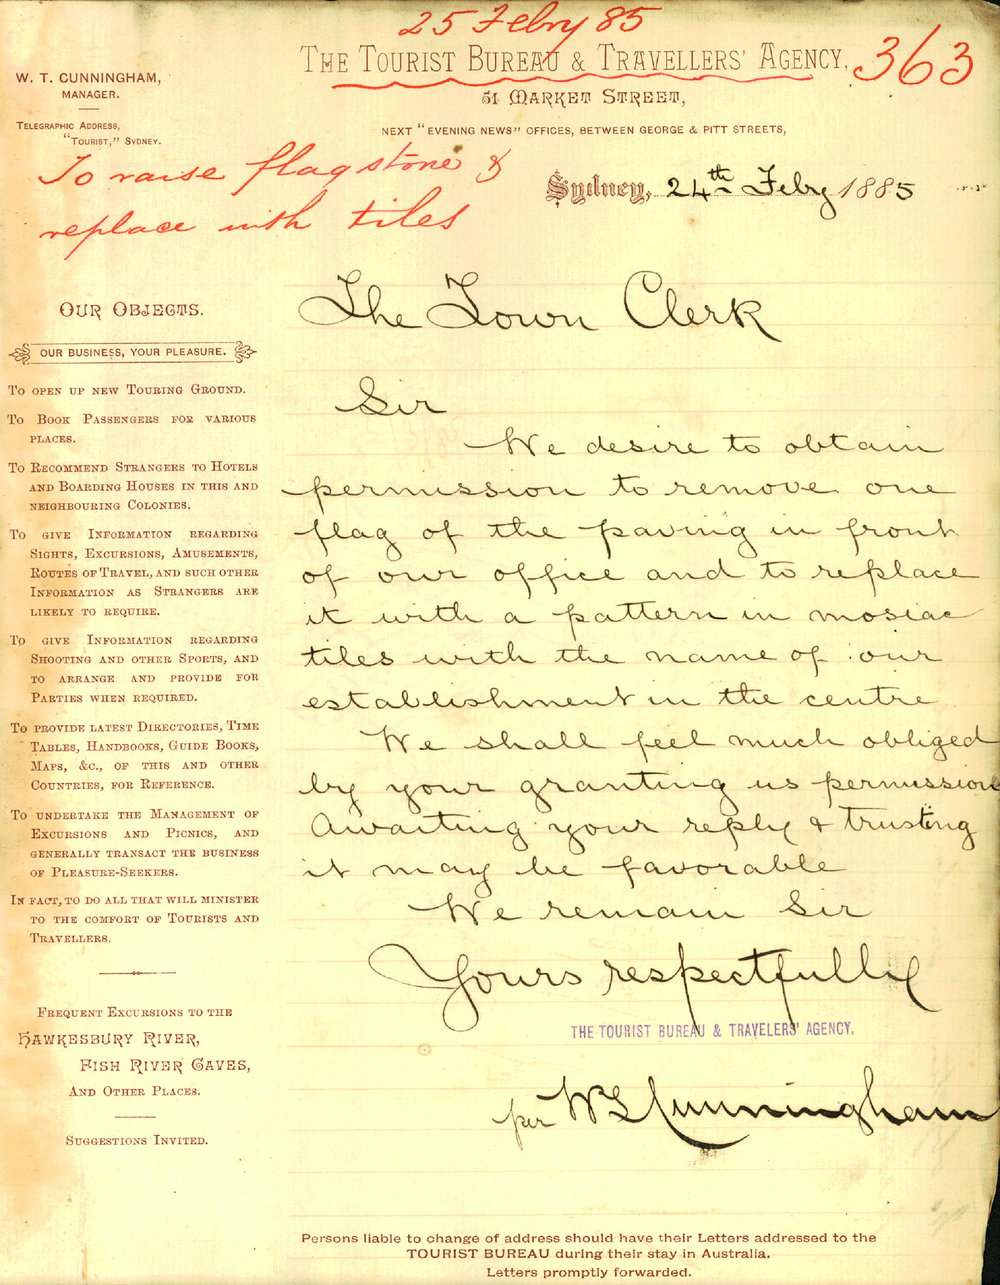 25 Febry 85
THE TOURIST BUREAU & TRAVELLERS' AGENCY,
363
51 MARKET STREET,
NEXT "EVENING NEWS" OFFICES, BETWEEN GEORGE & PITT STREETS,
W. T. CUNNINGHAM,
MANAGER.
TELEGRAPHIC ADDRESS,
"TOURIST," SYDNEY.
To raise flagstone &
replace with tiles
Sydney, 24th Febry 1885
OUR OBJECTS.
OUR BUSINESS, YOUR PLEASURE.
TO OPEN UP NEW TOURING GROUND.
TO BOOK PASSENGERS FOR VARIOUS
PLACES.
TO RECOMMEND STRANGERS TO HOTELS
AND BOARDING HOUSES IN THIS AND
NEIGHBOURING COLONIES.
TO GIVE INFORMATION REGARDING
SIGHTS, EXCURSIONS, AMUSEMENTS,
ROUTES OF TRAVEL, AND SUCH OTHER
INFORMATION AS STRANGERS ARE
LIKELY TO REQUIRE.
TO GIVE INFORMATION REGARDING
SHOOTING AND OTHER SPORTS, AND
TO ARRANGE AND PROVIDE FOR
PARTIES WHEN REQUIRED.
TO PROVIDE LATEST DIRECTORIES, TIME
TABLES, HANDBOOKS, GUIDE BOOKS,
MAPS, &C., OF THIS AND OTHER
COUNTRIES, FOR REFERENCE.
TO UNDERTAKE THE MANAGEMENT OF
EXCURSIONS AND PICNICS, AND
GENERALLY TRANSACT THE BUSINESS
OF PLEASURE-SEEKERS.
IN FACT, TO DO ALL THAT WILL MINISTER
TO THE COMFORT OF TOURISTS AND
TRAVELLERS.
FREQUENT EXCURSIONS TO THE
HAWKESBURY RIVER,
FISH RIVER CAVES,
AND OTHER PLACES.
SUGGESTIONS INVITED.
The Town Clerk
Sir
We desire to obtain
permission to remove one
flag of the paving in front
of our office and to replace
it with a pattern in mosiac
tiles with the name of our
establishment in the centre
We shall feel much obliged
by your granting us permission
Awaiting your reply & trusting
it may be favorable
We remain Sir
Yours respectfully
THE TOURIST BUREAU & TRAVELERS' AGENCY.
per W T Cunningham
Persons liable to change of address should have their Letters addressed to the
TOURIST BUREAU during their stay in Australia.
Letters promptly forwarded.